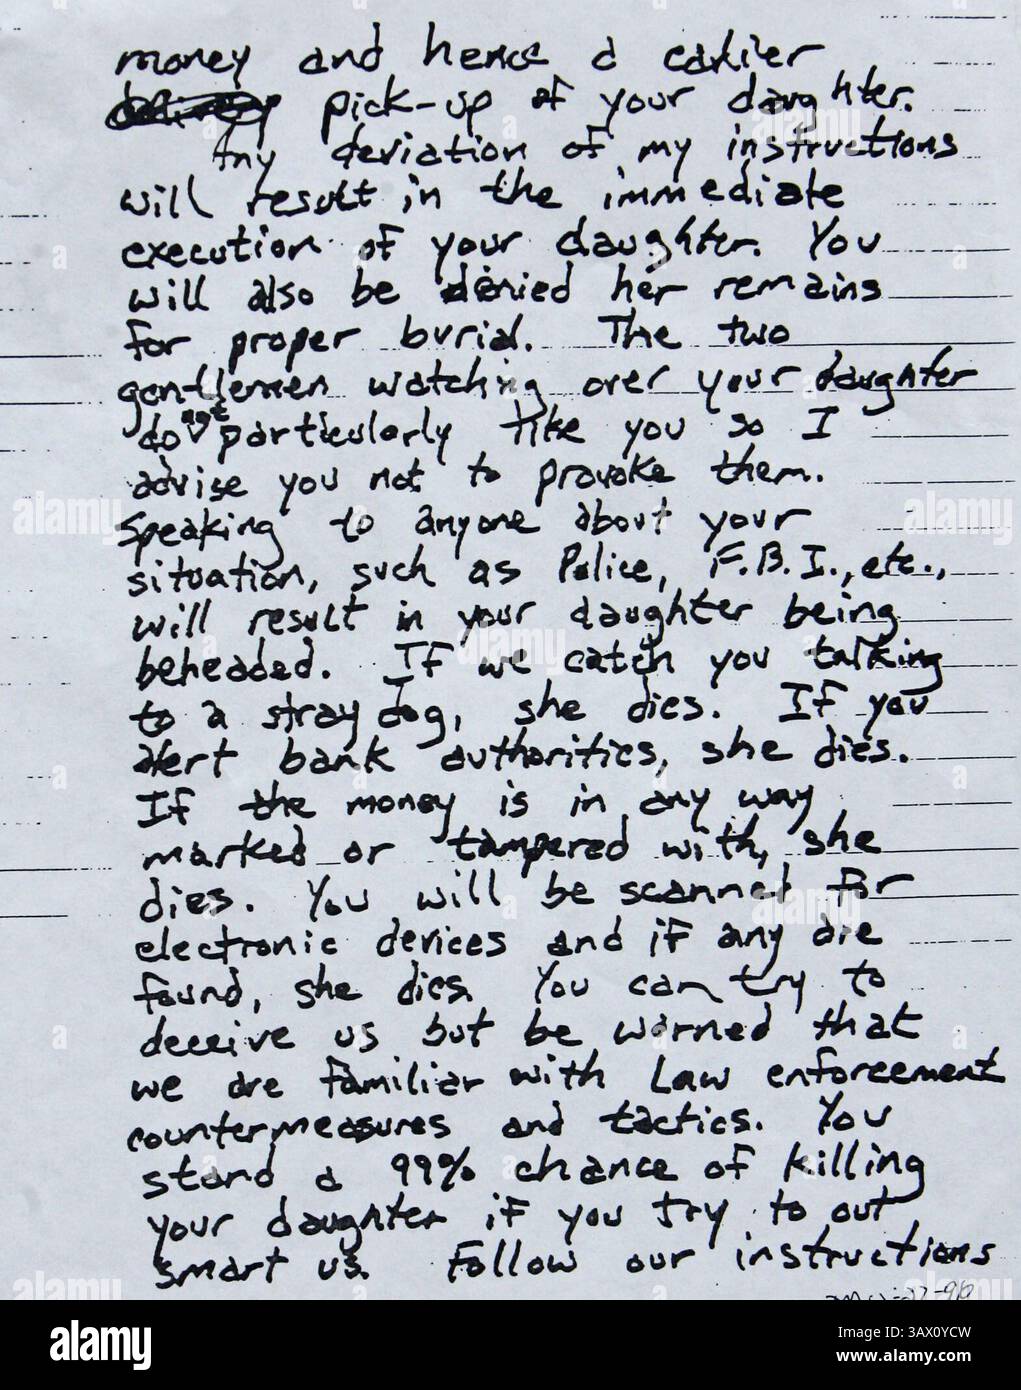 money and hence a earlier
delivery pick-up of your daughter.
Any deviation of my instructions
will result in the immediate
execution of your daughter. You
will also be denied her remains
for proper burial. The two
gentlemen watching over your daughter
do not particularly like you so I
advise you not to provoke them.
Speaking to anyone about your
situation, such as Police, F.B.I., etc.,
will result in your daughter being
beheaded. If we catch you talking
to a stray dog, she dies. If you
alert bank authorities, she dies.
If the money is in any way
marked or tampered with, she
dies. You will be scanned for
electronic devices and if any are
found, she dies. You can try to
deceive us but be warned that
we are familiar with Law enforcement
countermeasures and tactics. You
stand a 99% chance of killing
your daughter if you try to out
smart us. Follow our instructions
alamy
Image ID: 3AX0YCW
www.alamy.com